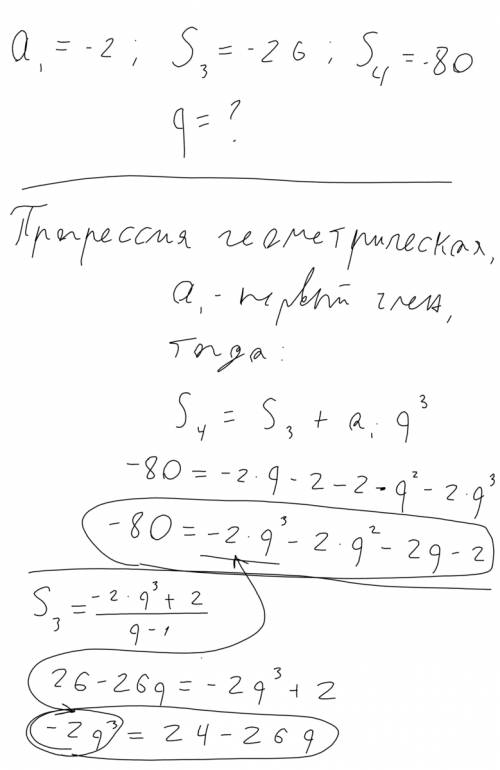 a₁ = -2 ; S₃ = -26 ; S₄ = -80
q = ?
Прогрессия геометрическая,
a₁ - первый член,
тогда:
S₄ = S₃ + a₁ q³
-80 = -2·q - 2 - 2·q² - 2·q³
-80 = -2·q³ - 2·q² - 2q - 2
S₃ = (-2·q³ + 2)/(q - 1)
26 - 26q = -2q³ + 2
-2q³ = 24 - 26q